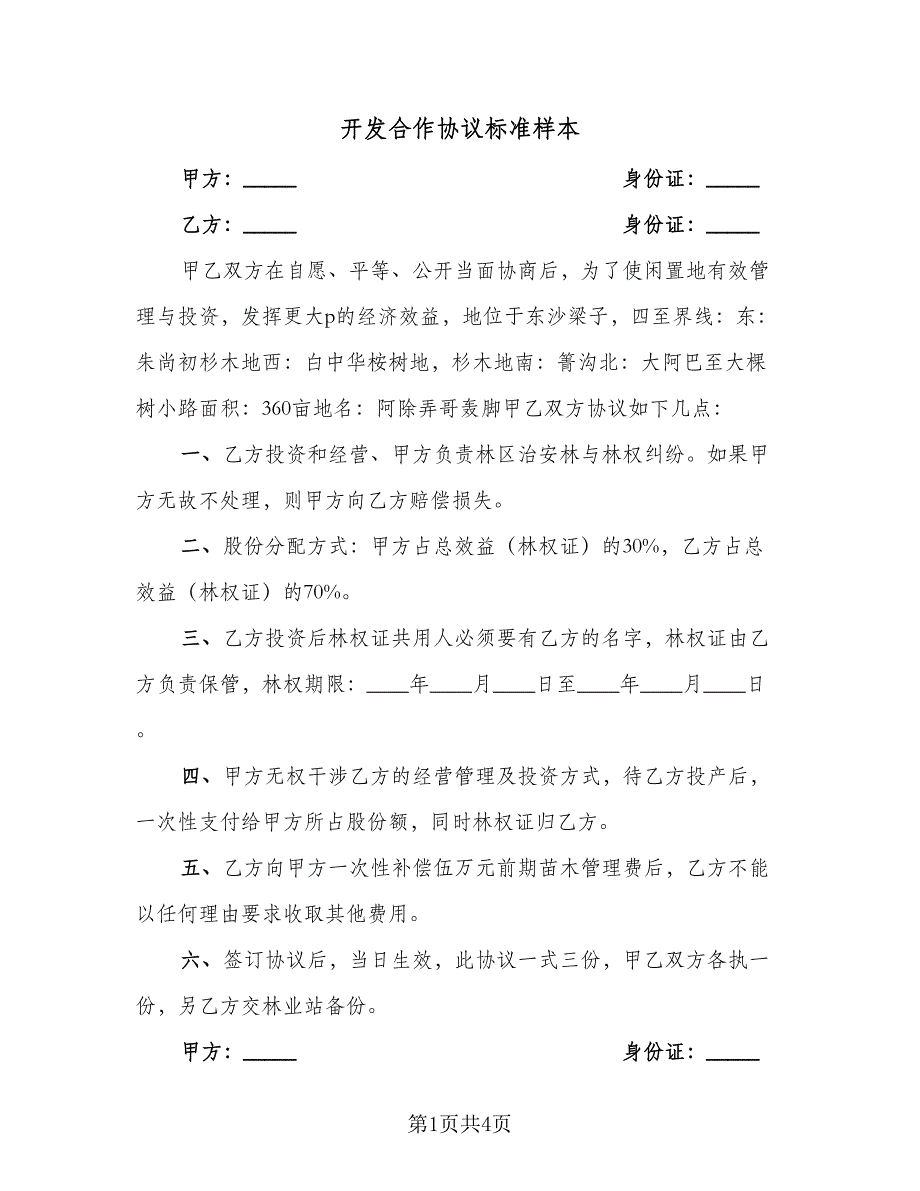 开发合作协议标准样本
甲方：_____ 身份证：_____
乙方：_____ 身份证：_____
甲乙双方在自愿、平等、公开当面协商后，为了使闲置地有效管
理与投资，发挥更大p的经济效益，地位于东沙梁子，四至界线：东：
朱尚初杉木地西：白中华桉树地，杉木地南：箐沟北：大阿巴至大棵
树小路面积：360亩地名：阿除弄哥轰脚甲乙双方协议如下几点：
一、乙方投资和经营、甲方负责林区治安林与林权纠纷。如果甲
方无故不处理，则甲方向乙方赔偿损失。
二、股份分配方式：甲方占总效益（林权证）的30%，乙方占总
效益（林权证）的70%。
三、乙方投资后林权证共用人必须要有乙方的名字，林权证由乙
方负责保管，林权期限：____年____月____日至____年____月____日
。
四、甲方无权干涉乙方的经营管理及投资方式，待乙方投产后，
一次性支付给甲方所占股份额，同时林权证归乙方。
五、乙方向甲方一次性补偿伍万元前期苗木管理费后，乙方不能
以任何理由要求收取其他费用。
六、签订协议后，当日生效，此协议一式三份，甲乙双方各执一
份，另乙方交林业站备份。
甲方：_____ 身份证：_____
第1页共4页